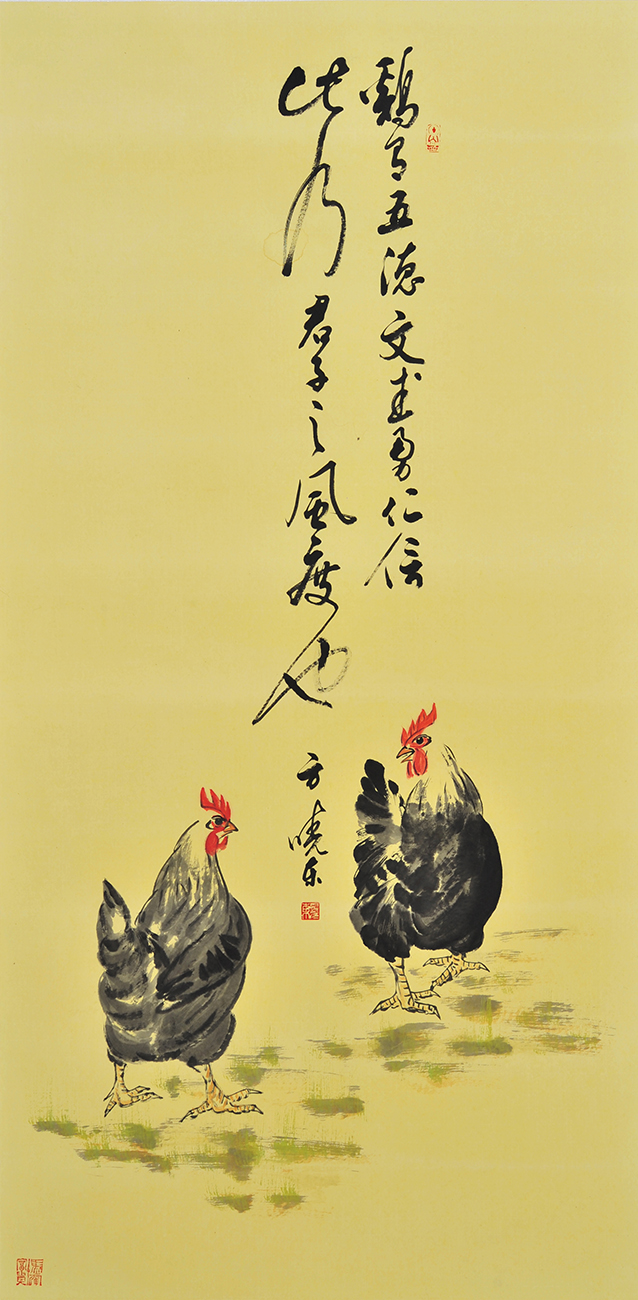 鷄有五德文武勇仁信
此乃君子之風度也
方曉乐